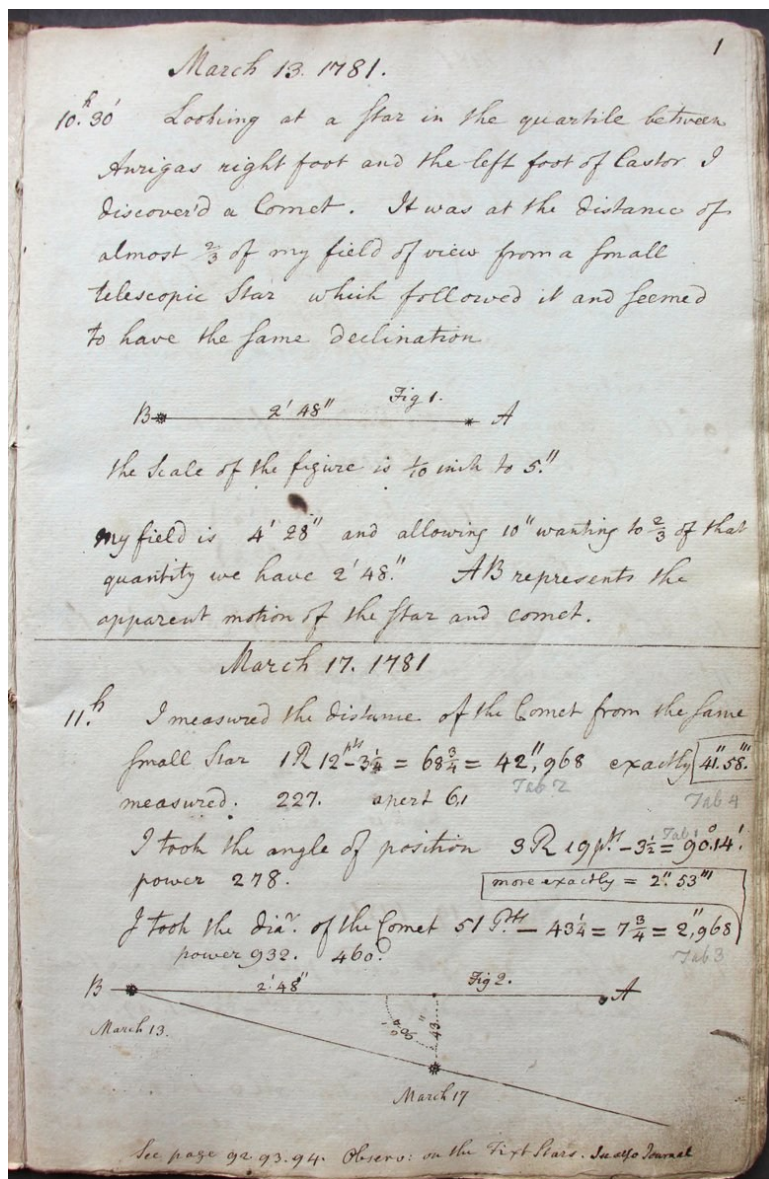 1
March 13. 1781.
10.h 30' Looking at a Star in the quartile between
Aurigas right foot and the left foot of Castor I
discover'd a Comet. It was at the distance of
almost 2/3 of my field of view from a small
telescopic Star which followed it and seemed
to have the same declination
Fig 1.
B 2' 48" A
the Scale of the figure is 1/10 inch to 5."
my field is 4' 28" and allowing 10" wanting to 2/3 of that
quantity we have 2' 48." AB represents the
apparent motion of the Star and comet.
March 17. 1781
11.h I measured the distance of the Comet from the same
small Star 1R 12pts - 3 1/4 = 68 3/4 = 42",968 exactly 41".58'''
Tab 2
measured. 227. apert 6,1 Tab 4
Tab 1
I took the angle of position 3R 19pts. - 3 1/2 = 90°.14'.
power 278. more exactly = 2". 53'''
I took the diar. of the Comet 51 Pts - 43 1/4 = 7 3/4 = 2",968
power 932. 460? Tab 3
B 2' 48" Fig 2. A
March 13.
43"
March 17
See page 92. 93. 94. Observ: on the Fixt Stars. In also Journal